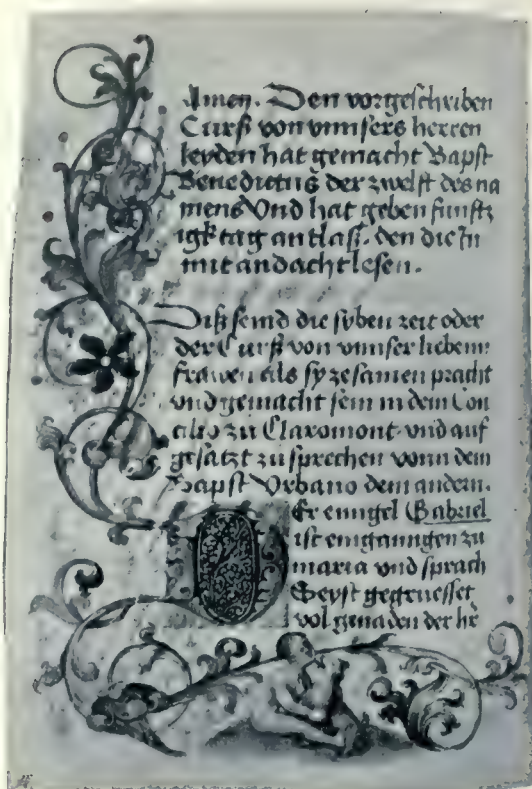 Amen. Den vorgeschriben
Curß von vnnsers herren
leyden hat gemacht Bapst
Benedictus der zwelft des na
mens Vnd hat geben funftz
igk tag antlaß. den die In
mit andacht lesen.
Diß seind die syben zeit oder
der Curß von vnnser lieben
frawen als sy zesamen pracht
vnd gemacht sein in dem Con
cilio zu Claromont vnd auf
gesatzt zu sprechen vonn dem
Bapst Vrbano dem andern.
Der enngel Gabriel
ist eingangen zu
maria vnd sprach
Seyst gegruesset
vol genaden der he